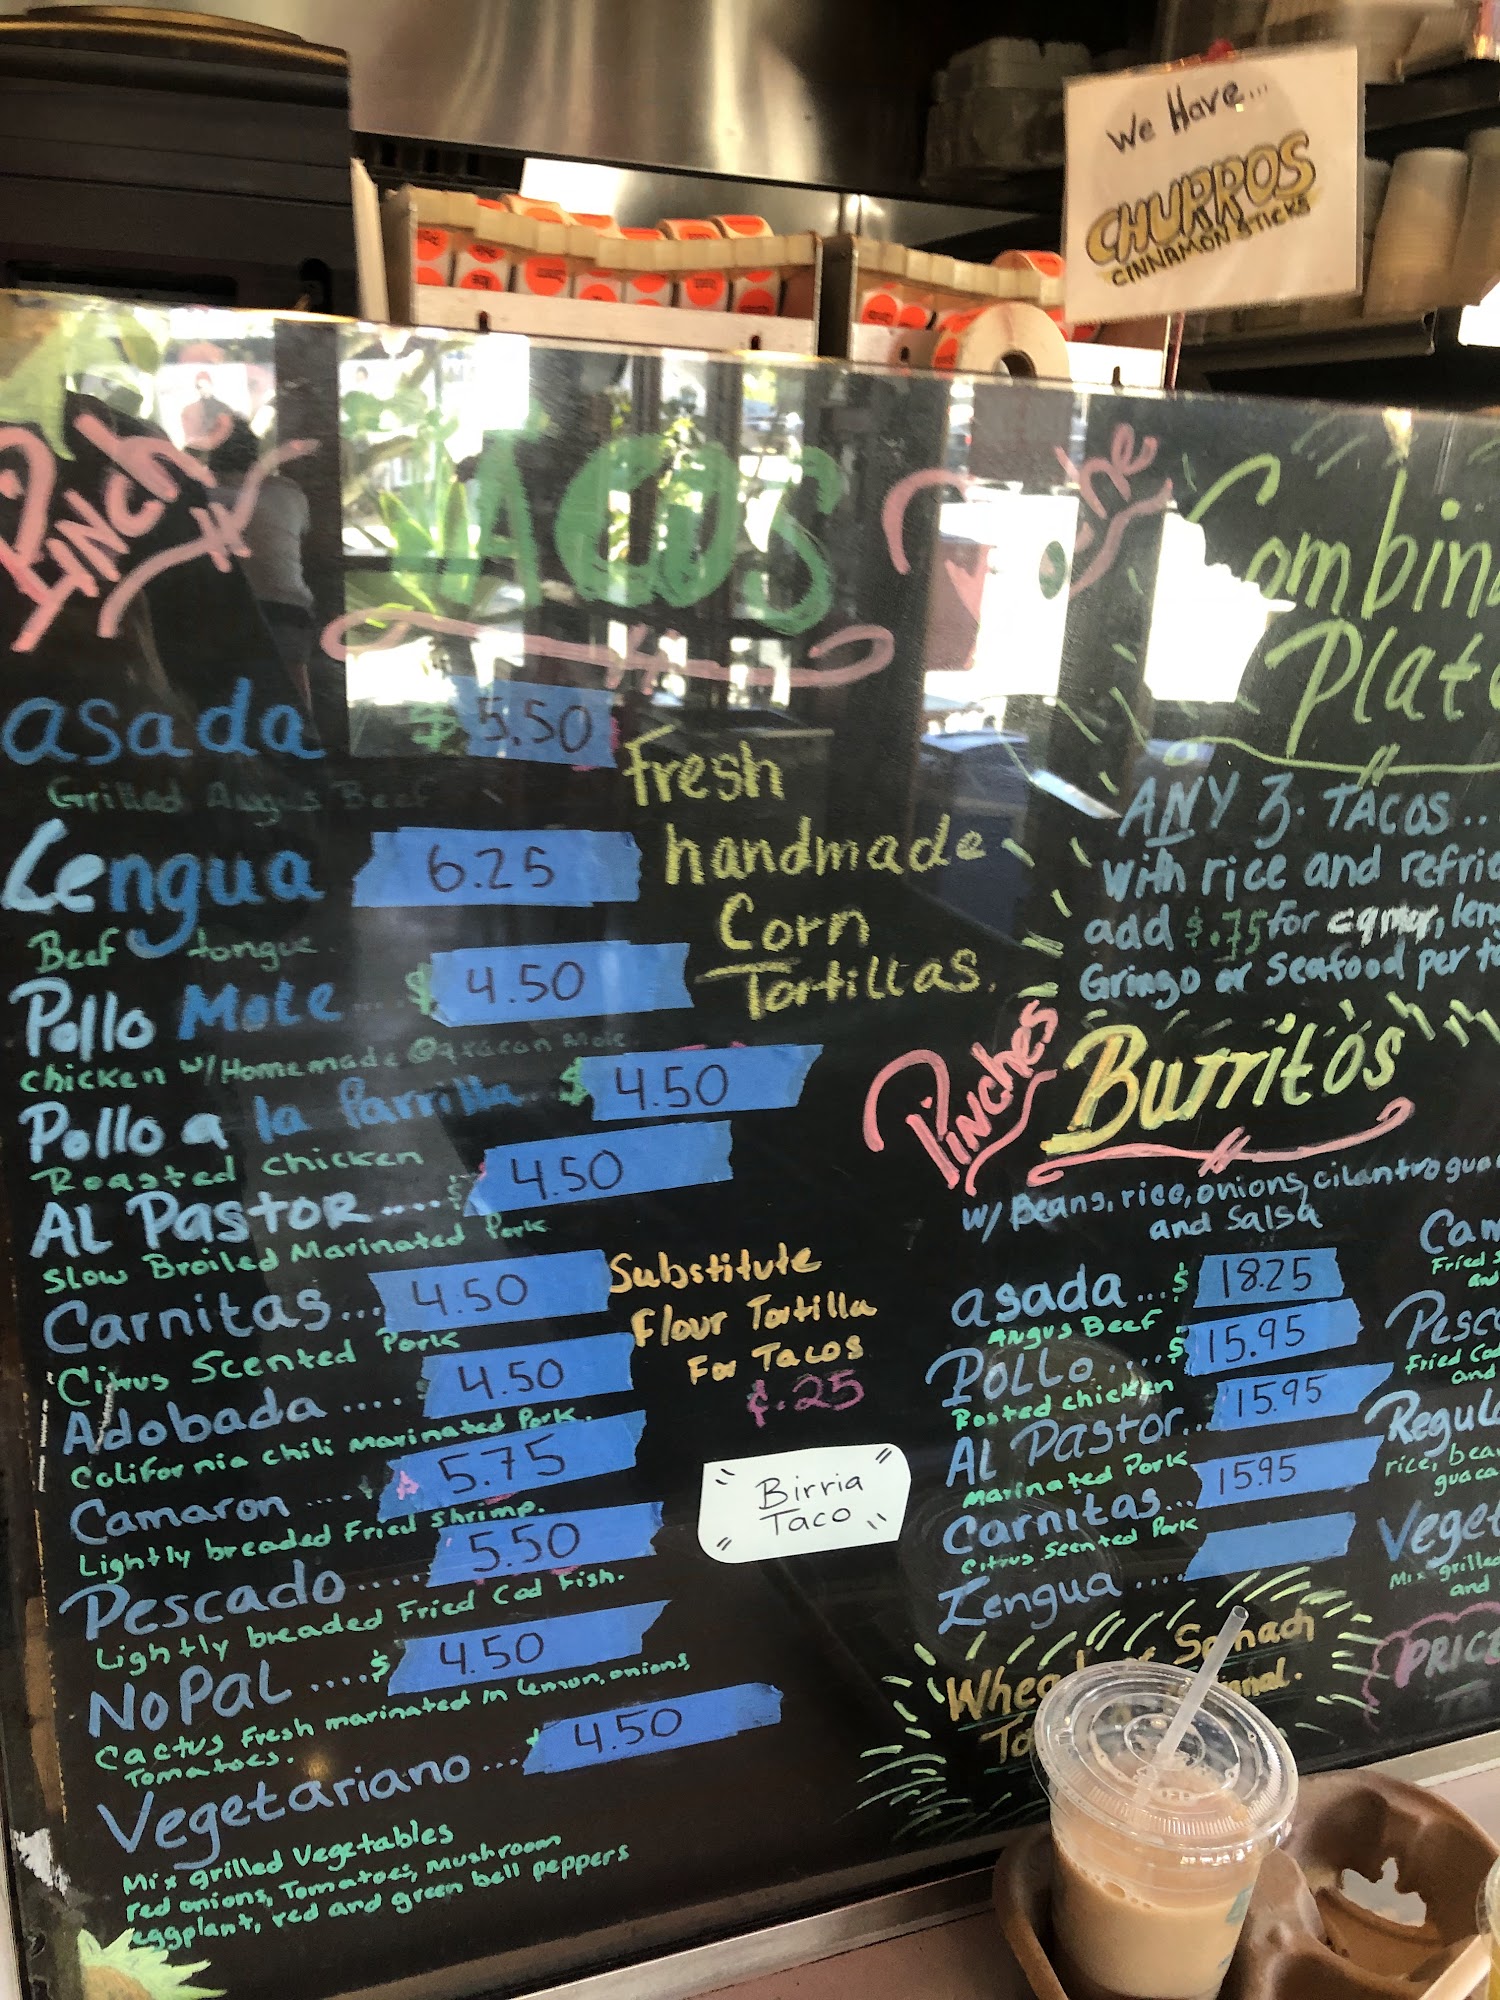 We Have...
CHURROS
CINNAMON STICKS
Pinche
TACOS
asada $ 5.50
Grilled Angus Beef
Lengua 6.25
Beef tongue
Pollo Mole... $ 4.50
Chicken w/Homemade Oaxacan Mole
Pollo a la Parrilla... $ 4.50
Roasted Chicken
AL PASTOR .... $ 4.50
Slow Broiled Marinated Pork
Carnitas... 4.50
Citrus Scented Pork
Adobada .... 4.50
California chili Marinated Pork.
Camaron .... 5.75
Lightly breaded Fried Shrimp.
Pescado ..... 5.50
Lightly breaded Fried Cod Fish.
NoPaL ....$ 4.50
Cactus Fresh marinated in Lemon, onions,
Tomatoes.
Vegetariano ... 4.50
Mix grilled Vegetables
red onions, Tomatoes, Mushroom
eggplant, red and green bell peppers
Fresh
handmade
Corn
Tortillas.
Substitute
Flour Tortilla
For Tacos
¢.25
Birria
Taco
Combin
Plate
ANY 3. TACOS..
With rice and refrie
add $.75 for
Gringo or Seafood per
Pinches
Burritos
w/ Beans, rice, onions, cilantro gua
and Salsa
asada...$ 18.25
Angus Beef
POLLO ....$ 15.95
Rosted chicken
AL PASTOR... 15.95
Marinated Pork
Carnitas... 15.95
Citrus Scented Pork
Lengua ....
Cam
Fried S
and
Pesc
Fried Cod
and
Regul
rice, bea
guaca
Veget
Mix grille
and
PRICE